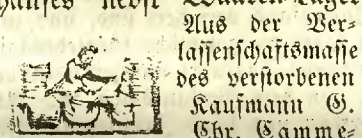 hauses nebst Waaren-Lager
Aus der Ver-
lassenschaftsmasse
des verstorbenen
Kaufmann G.
Chr. Camme-